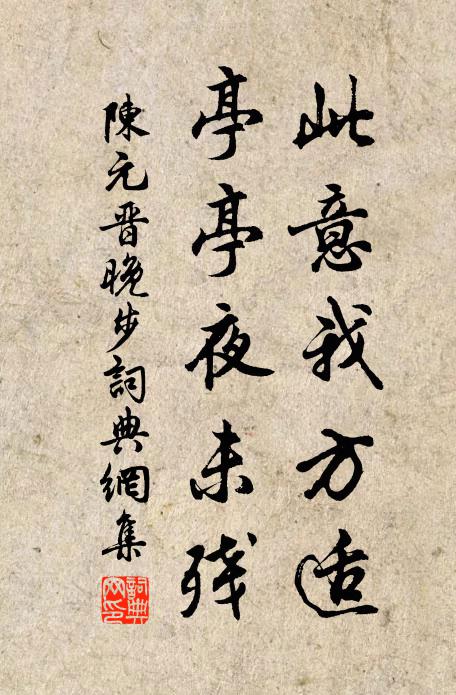 此意我方适
亭亭夜未残
陳元晋晚步詞典網集
詞典网印